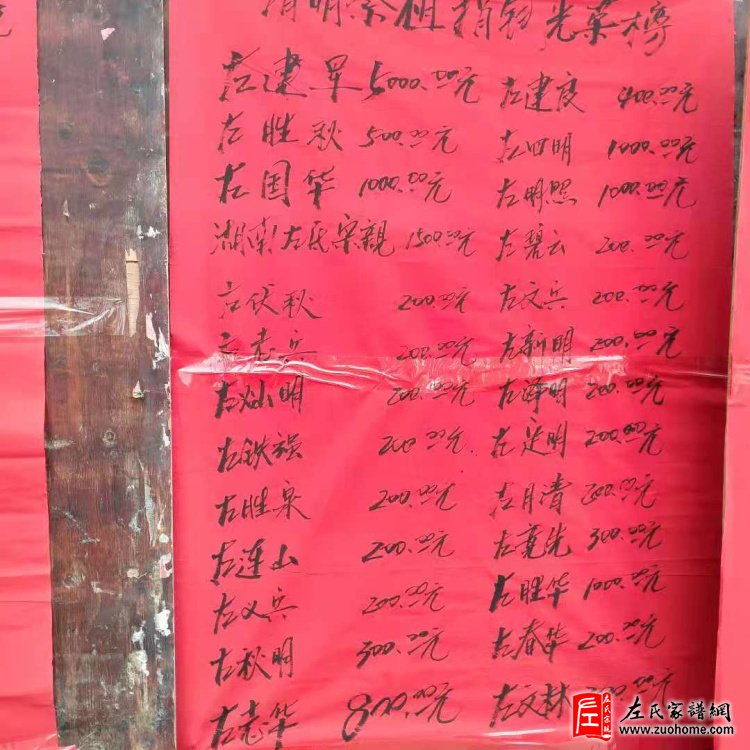 清明祭祖捐钱光荣榜
左建军 5000.00元 左建良 400.00元
左胜秋 500.00元 左四明 1000.00元
左国华 1000.00元 左明照 1000.00元
湖南左氏宗親 1500.00元 左碧云 200.00元
左伏秋 200.00元 左文兵 200.00元
左志兵 200.00元 左新明 200.00元
左灿明 200.00元 左泽明 200.00元
左铁强 200.00元 左建明 200.00元
左胜泉 200.00元 左月清 200.00元
左连山 200.00元 左先 300.00元
左义兵 200.00元 左胜华 1000.00元
左秋明 300.00元 左春华 200.00元
左志华 800.00元 左文林 00.00元
左氏宗親
左氏家譜網
www.zuohome.com